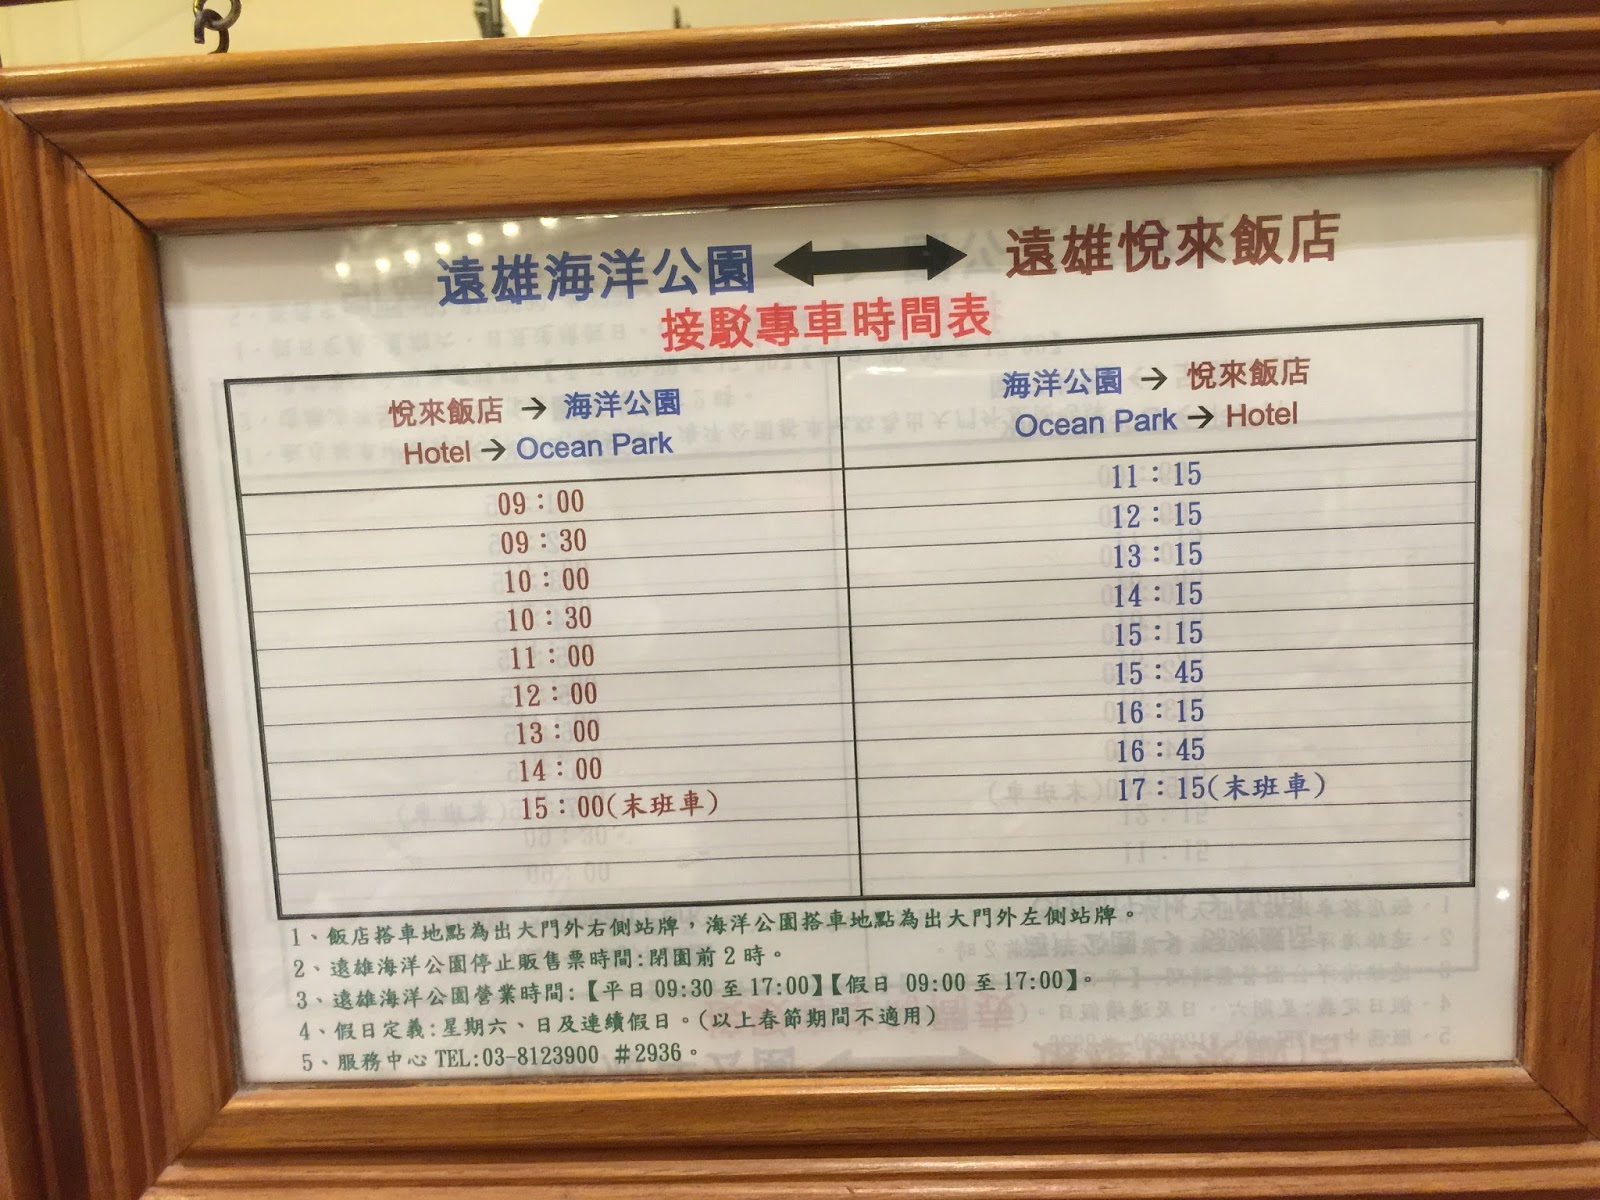 遠雄海洋公園 ↔ 遠雄悅來飯店
接駁專車時間表
悅來飯店 → 海洋公園
Hotel → Ocean Park
海洋公園 → 悅來飯店
Ocean Park → Hotel
09：00 11：15
09：30 12：15
10：00 13：15
10：30 14：15
11：00 15：15
12：00 15：45
13：00 16：15
14：00 16：45
15：00(末班車) 17：15(末班車)
1、飯店搭車地點為出大門外右側站牌，海洋公園搭車地點為出大門外左側站牌。
2、遠雄海洋公園停止販售票時間:閉園前2時。
3、遠雄海洋公園營業時間:【平日 09:30 至 17:00】【假日 09:00 至 17:00】。
4、假日定義:星期六、日及連續假日。(以上春節期間不適用)
5、服務中心 TEL:03-8123900 #2936。